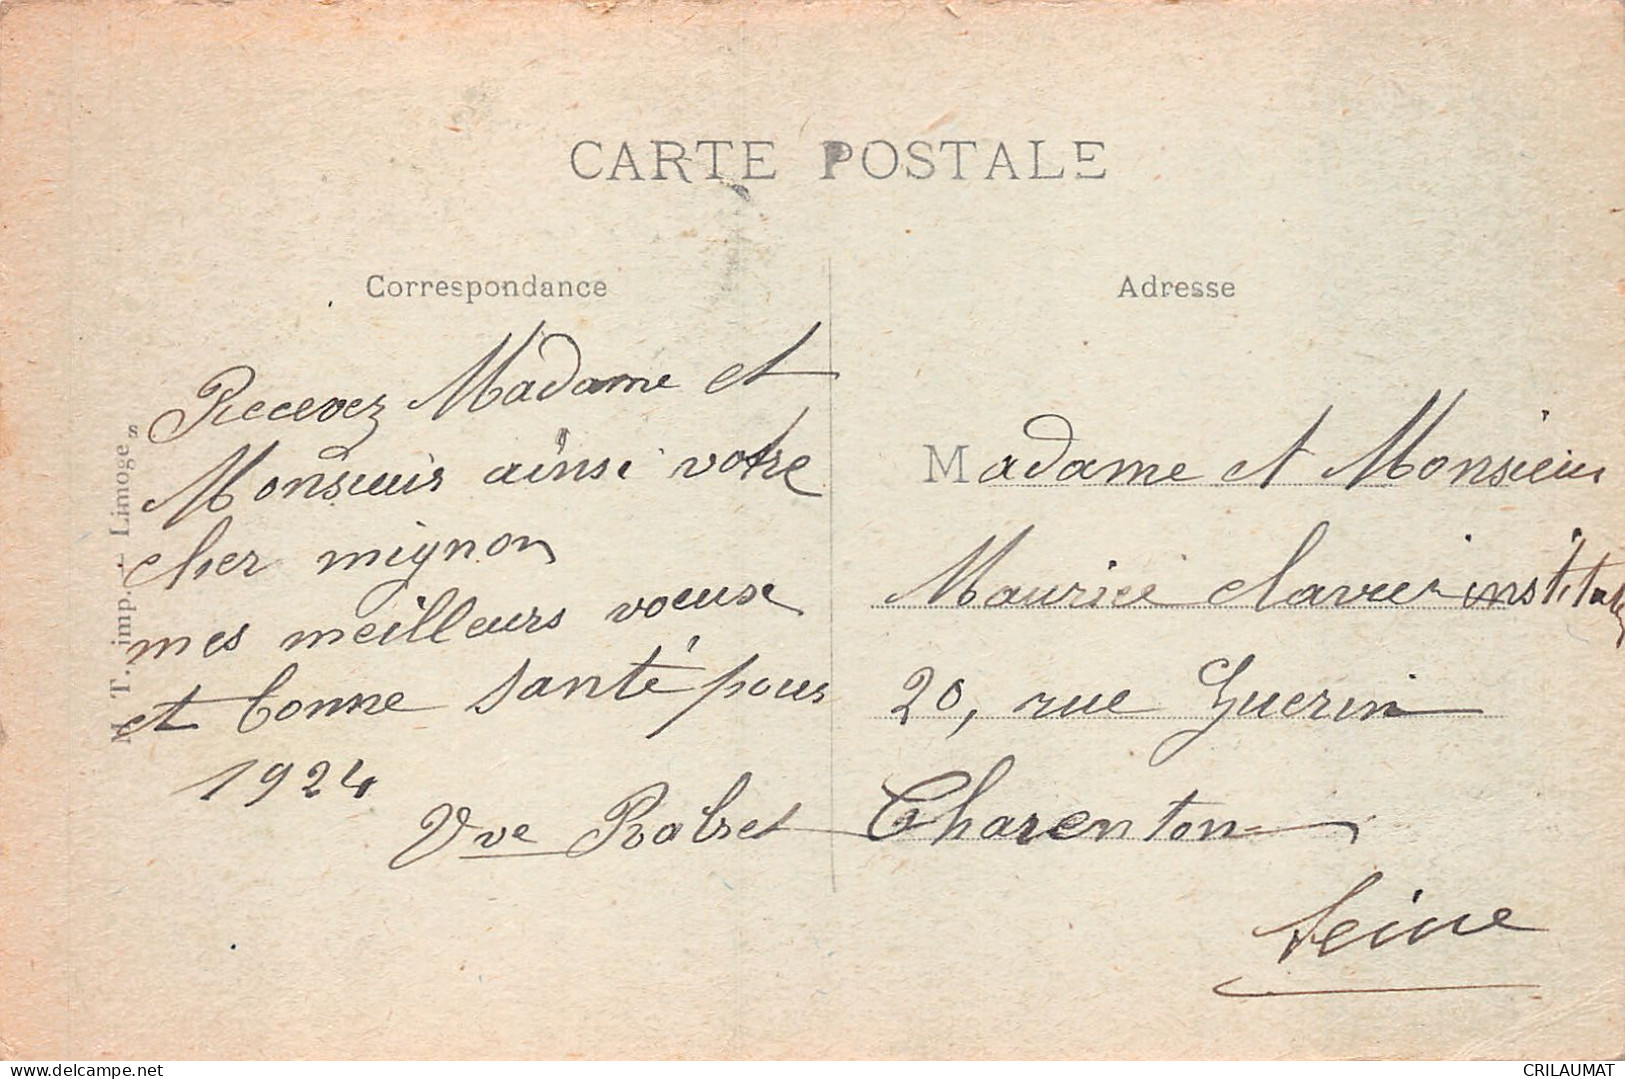 CARTE POSTALE
Correspondance
Recevez Madame et
Monsieur ainsi votre
cher mignon
mes meilleurs voeux
et bonne santé pour
1924
Vve
M. T. imp. - Limoges
Adresse
Madame et Monsieur
Maurice Clavier
20, rue Guerin
Charenton
Seine
delcampe.net
CRILAUMAT